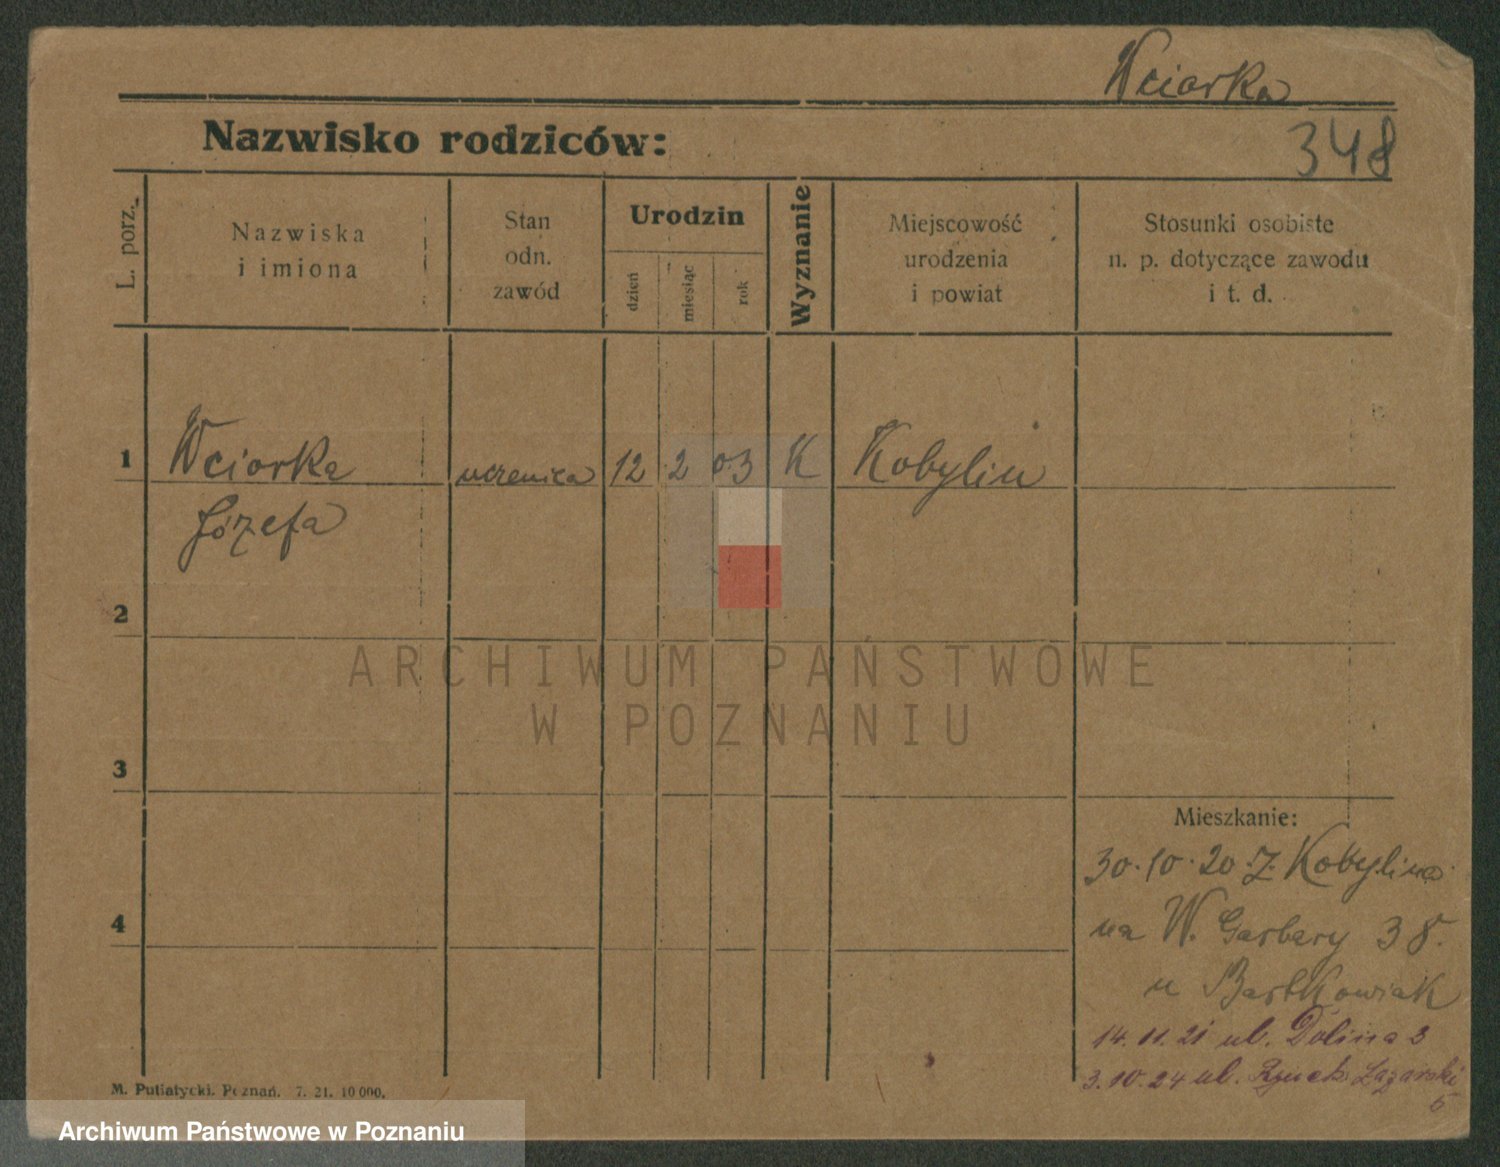 Wciorka
Nazwisko rodziców:
348
L. porz.
Nazwiska
i imiona
Stan
odn.
zawód
Urodzin
dzień
miesiąc
rok
Wyznanie
Miejscowość
urodzenia
i powiat
Stosunki osobiste
n. p. dotyczące zawodu
i t. d.
1
Wciorka
uczenica
12
2
03
K
Kobylin
Józefa
2
ARCHIWUM PAŃSTWOWE
W POZNANIU
3
Mieszkanie:
30.10.20 z Kobylina
4
na W. Garbary 38.
u Bartkowiak
14.11.21 ul. Dolina 3
3.10.24 ul. Rynek Łazarski
5
M. Putiatycki. Poznań. 7. 21. 10 000.
Archiwum Państwowe w Poznaniu